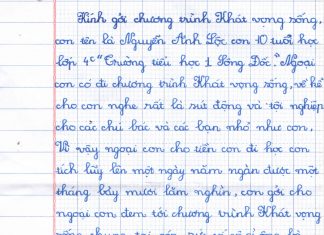 Kính gởi chương trình Khát vọng sống,
con tên là Nguyễn Anh Lộc con 10 tuổi học
lớp 4c "Trường tiểu học 1 Sông Đốc". Ngoại
con có đi chương trình Khát vọng sống, về kể
cho con nghe rất là xút động và tội nghiệp
cho các chú bác và các bạn nhỏ như con.
Vì vậy ngoại con cho tiền con đi học con
tích lũy lên một ngày năm ngàn được một
tháng bảy mươi lăm nghìn, con gởi cho
ngoại con đem tới chương trình Khát vọng